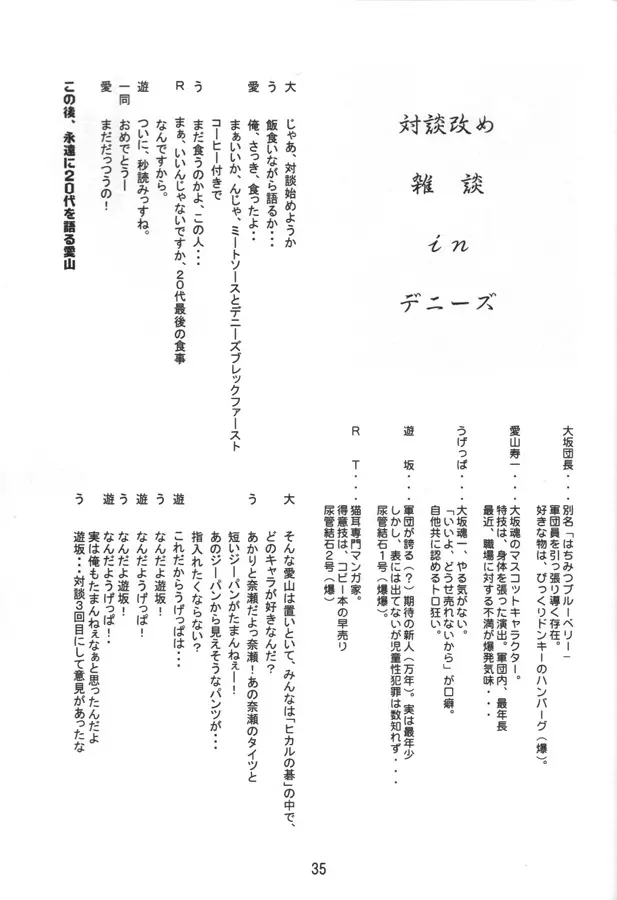 対談改め
雑談
in
デニーズ
大坂団長・・・別名「はちみつブルーベリー」
軍団員を引っ張り導く存在。
好きな物は、びっくりドンキーのハンバーグ(爆)。
愛山寿一・・・大坂魂のマスコットキャラクター。
特技は、身体を張った演出。軍団内、最年長
最近、職場に対する不満が爆発気味・・・
うげっぱ・・・大坂魂一、やる気がない。
「いいよ、どうせ売れないから」が口癖。
自他共に認めるトロ狂い。
遊 坂・・・軍団が誇る(?)期待の新人(万年)。実は最年少
しかし、表には出てないが児童性犯罪は数知れず・・・
尿管結石1号(爆爆)。
R T・・・猫耳専門マンガ家。
得意技は、コピー本の早売り
尿管結石2号(爆)
大 じゃあ、対談始めようか
う 飯食いながら語るか・・・
愛 俺、さっき、食ったよ・・
まぁいいか、んじゃ、ミートソースとデニーズブレックファースト
コーヒー付きで
う まだ食うのかよ、この人・・・
R まぁ、いいんじゃないですか、20代最後の食事
なんですから。
遊 ついに、秒読みっすね。
一同 おめでとうー
愛 まだだっつうの!
この後、永遠に20代を語る愛山
大 そんな愛山は置いといて、みんなは「ヒカルの碁」の中で、
どのキャラが好きなんだ?
う あかりと奈瀬だよっ奈瀬!あの奈瀬のタイツと
短いジーパンがたまんねぇー!
あのジーパンから見えそうなパンツが・・・
指入れたくならない?
遊 これだからうげっぱは・・・
う なんだよ遊坂!
遊 なんだようげっぱ!
う なんだよ遊坂!
遊 なんだようげっぱ!・・
実は俺もたまんねぇなぁと思ったんだよ
う 遊坂・・・対談3回目にして意見があったな
35